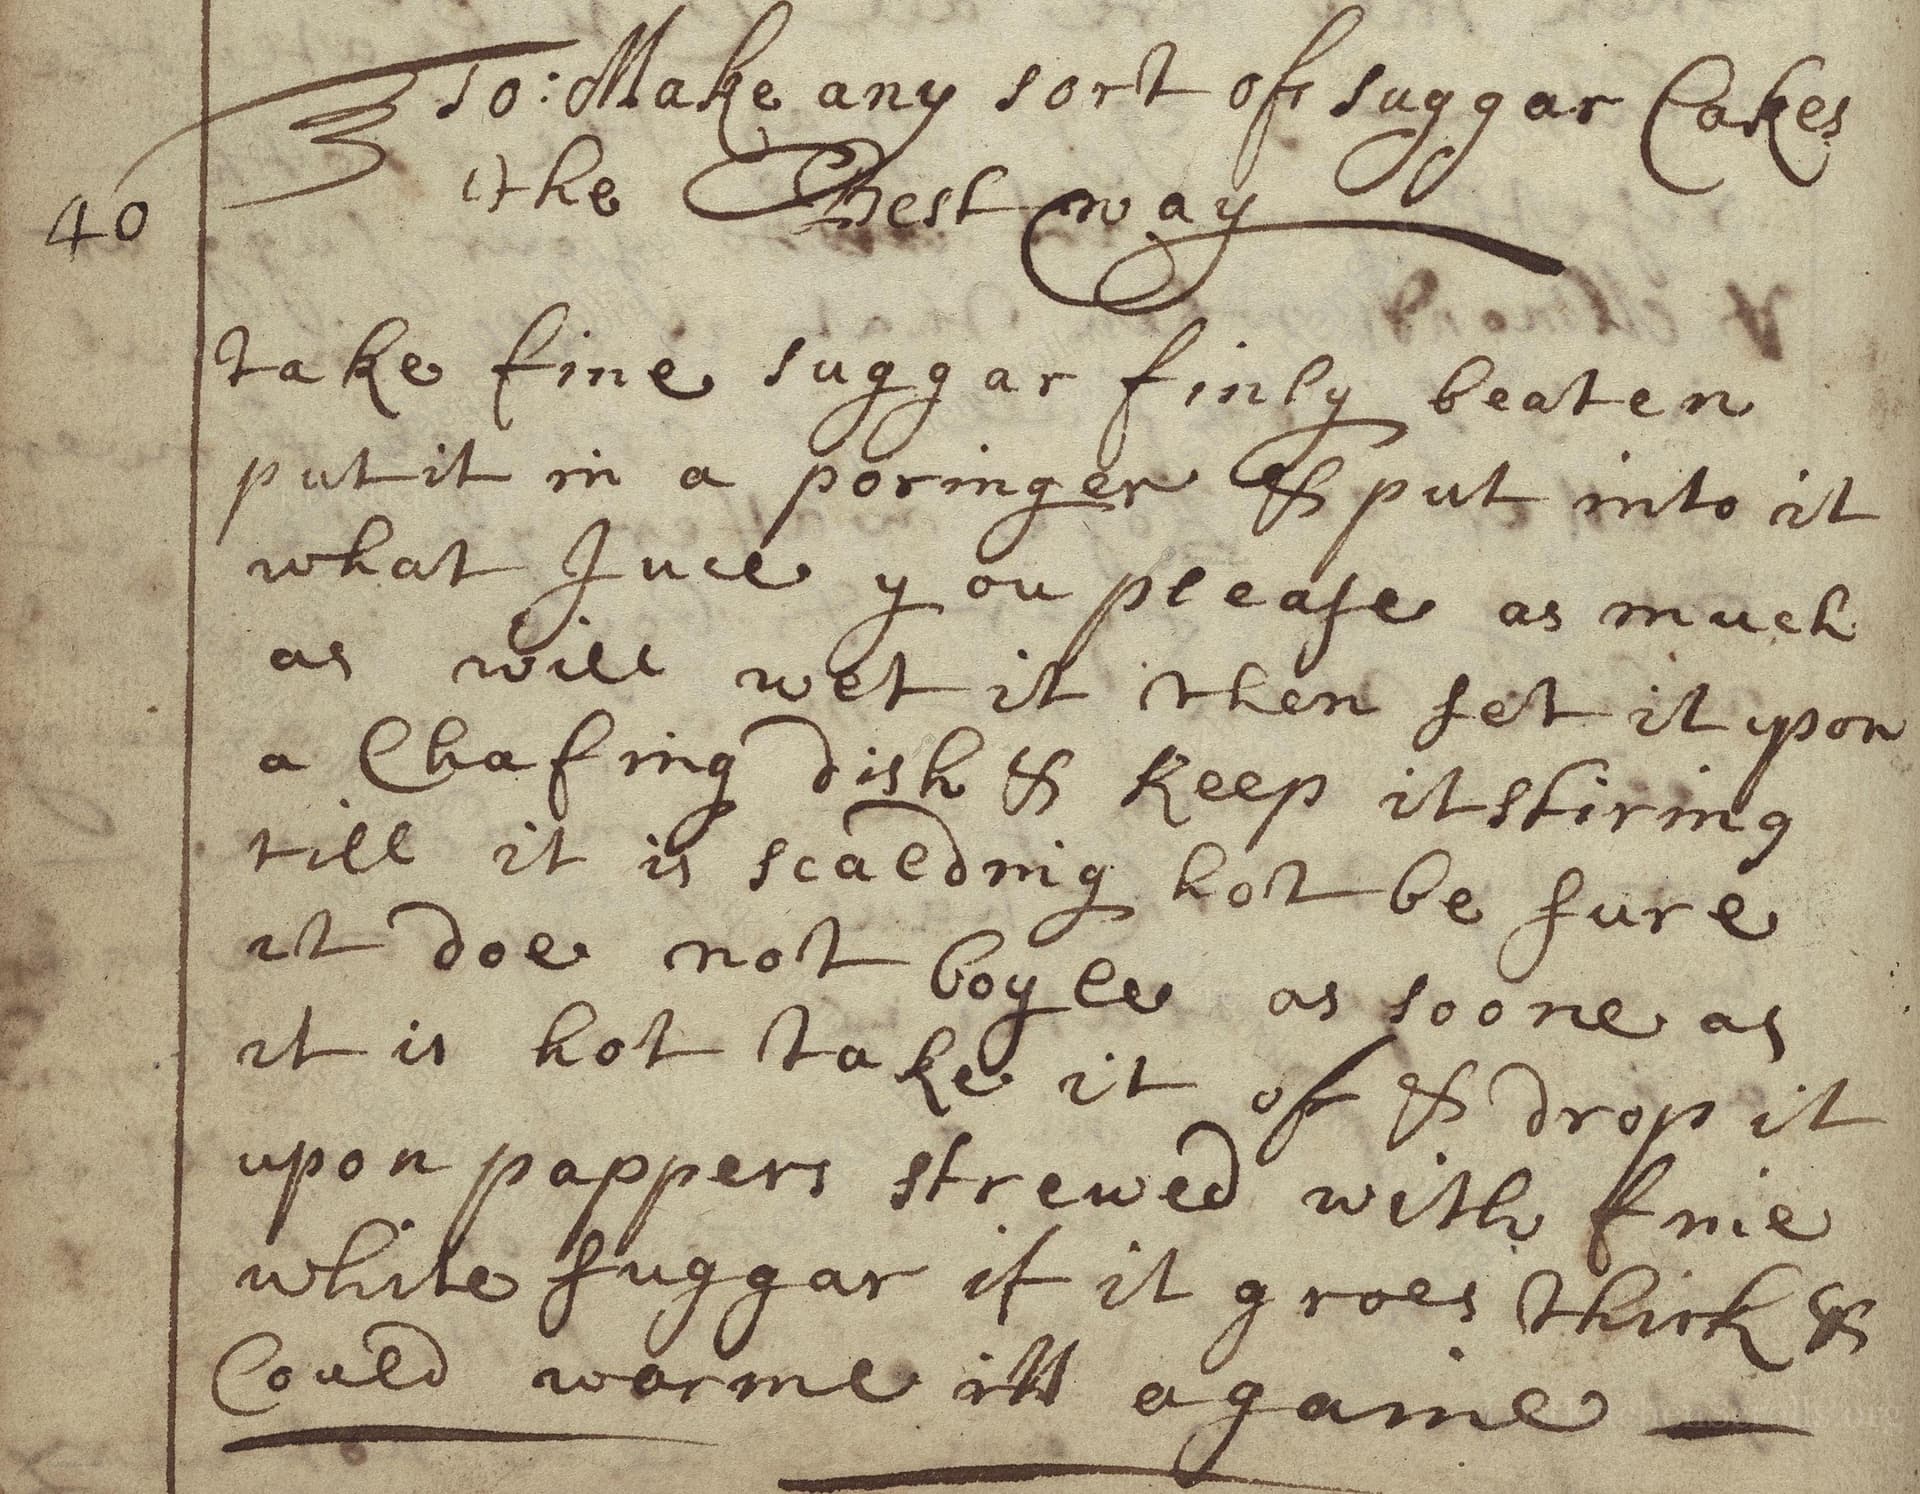 To: Make any sort of suggar Cakes
the Best way
40
take fine suggar finly beaten
put it in a poringer & put into it
what Juce you please as much
as will wet it then set it upon
a Chafing dish & keep it stiring
till it is scalding hot be sure
it doe not boyle as soone as
it is hot take it of & drop it
upon pappers strewed with fine
white suggar if it groes thick &
Could warme itt againe